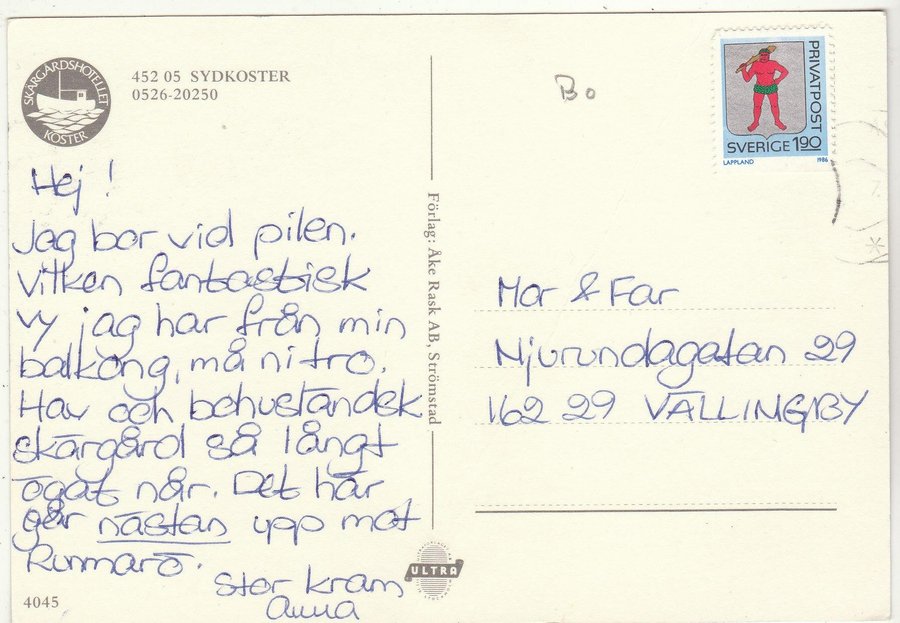 SKÄRGÅRDSHOTELLET
KOSTER
452 05 SYDKOSTER
0526-20250
Hej!
Jag bor vid pilen.
Vilken fantastisk
vy jag har från min
balkong, må ni tro.
Hav och bohusländsk
skärgård så långt
ögat når. Det här
går nästan upp mot
Runmarö.
Stor kram
Anna
4045
Förlag: Åke Rask AB, Strömstad
ULTRA
Bo
PRIVATPOST
SVERIGE 1.90
LAPPLAND 1986
Mor & Far
Njurundagatan 29
162 29 VÄLLINGBY